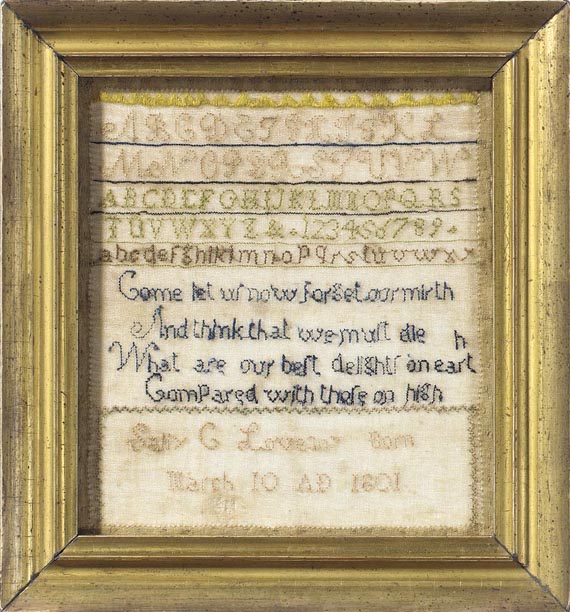 A B C D E F G H I J K L
M N O P Q R S T U V W
ABCDEFGHIJKLMNOPQRS
TUVWXYZ&.123456789.
abcdefghiklmnopqrstuvwxy
Come let us now forget our mirth
And think that we must die h
What are our best delights on eart
Compared with those on high
Sally C Born
March 10 AD 1801